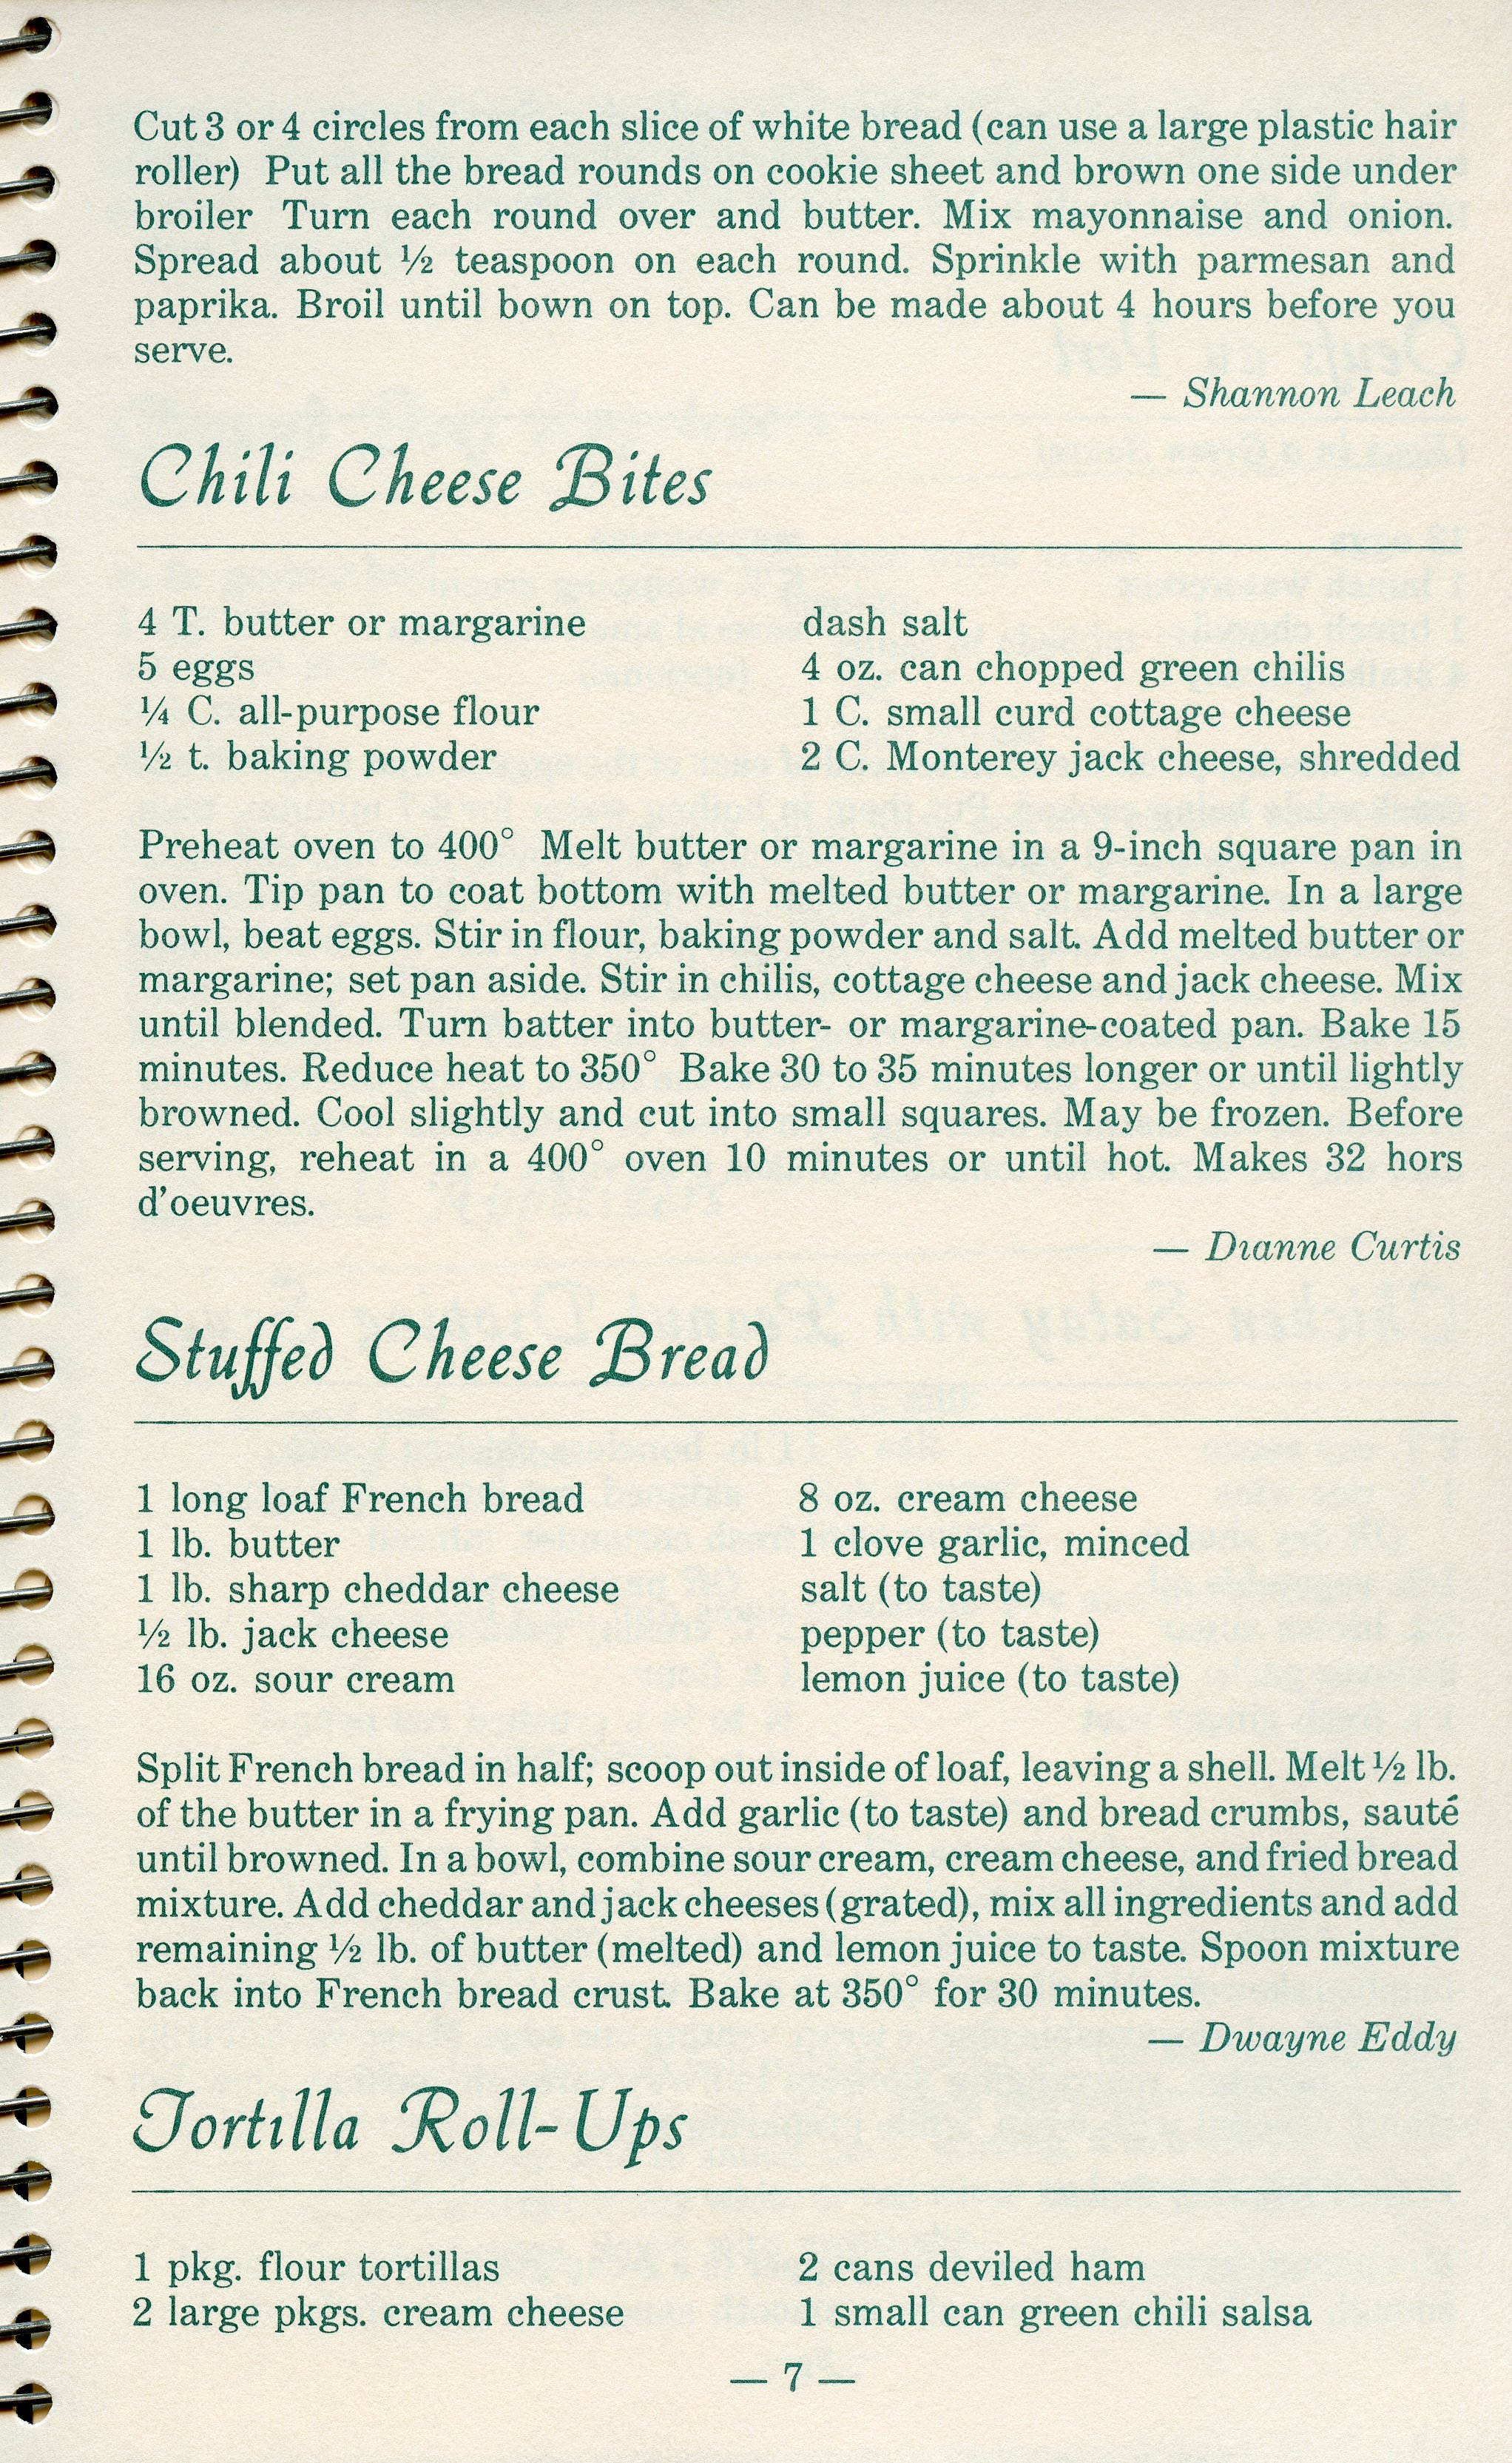 Cut 3 or 4 circles from each slice of white bread (can use a large plastic hair
roller) Put all the bread rounds on cookie sheet and brown one side under
broiler Turn each round over and butter. Mix mayonnaise and onion.
Spread about ½ teaspoon on each round. Sprinkle with parmesan and
paprika. Broil until bown on top. Can be made about 4 hours before you
serve.
— Shannon Leach
Chili Cheese Bites
4 T. butter or margarine
5 eggs
¼ C. all-purpose flour
½ t. baking powder
dash salt
4 oz. can chopped green chilis
1 C. small curd cottage cheese
2 C. Monterey jack cheese, shredded
Preheat oven to 400° Melt butter or margarine in a 9-inch square pan in
oven. Tip pan to coat bottom with melted butter or margarine. In a large
bowl, beat eggs. Stir in flour, baking powder and salt. Add melted butter or
margarine; set pan aside. Stir in chilis, cottage cheese and jack cheese. Mix
until blended. Turn batter into butter- or margarine-coated pan. Bake 15
minutes. Reduce heat to 350° Bake 30 to 35 minutes longer or until lightly
browned. Cool slightly and cut into small squares. May be frozen. Before
serving, reheat in a 400° oven 10 minutes or until hot. Makes 32 hors
d'oeuvres.
— Dianne Curtis
Stuffed Cheese Bread
1 long loaf French bread
1 lb. butter
1 lb. sharp cheddar cheese
½ lb. jack cheese
16 oz. sour cream
8 oz. cream cheese
1 clove garlic, minced
salt (to taste)
pepper (to taste)
lemon juice (to taste)
Split French bread in half; scoop out inside of loaf, leaving a shell. Melt ½ lb.
of the butter in a frying pan. Add garlic (to taste) and bread crumbs, sauté
until browned. In a bowl, combine sour cream, cream cheese, and fried bread
mixture. Add cheddar and jack cheeses (grated), mix all ingredients and add
remaining ½ lb. of butter (melted) and lemon juice to taste. Spoon mixture
back into French bread crust. Bake at 350° for 30 minutes.
— Dwayne Eddy
Tortilla Roll-Ups
1 pkg. flour tortillas
2 large pkgs. cream cheese
2 cans deviled ham
1 small can green chili salsa
— 7 —